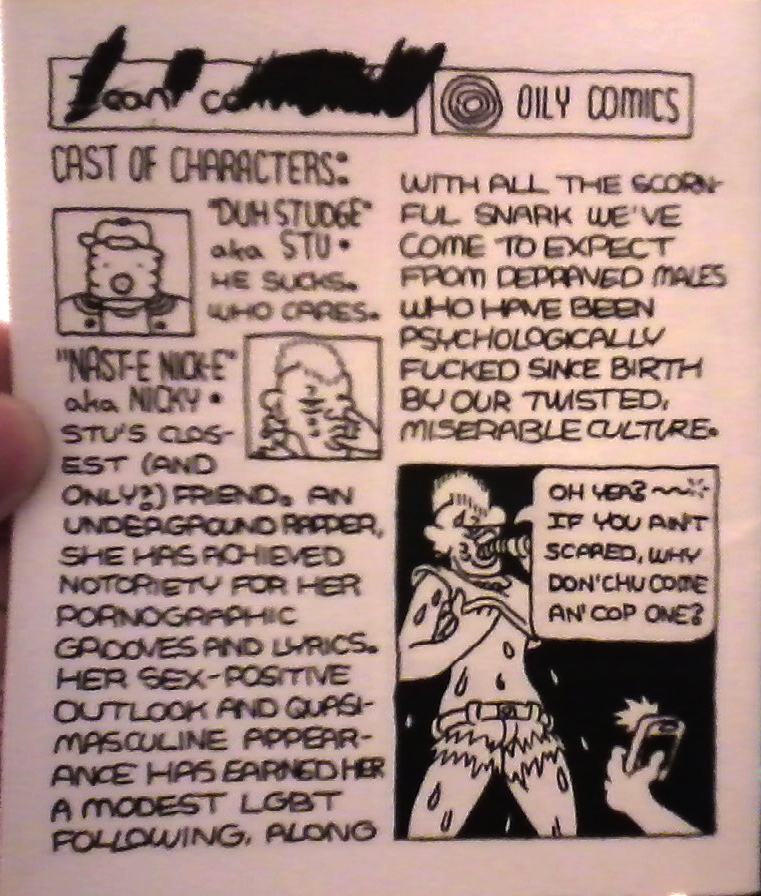 OILY COMICS
CAST OF CHARACTERS:
"DUH STUDGE"
aka STU •
HE SUCKS.
WHO CARES.
"NAST-E NICK-E"
aka NICKY •
STU'S CLOS-
EST (AND
ONLY?) FRIEND. AN
UNDERGROUND RAPPER,
SHE HAS ACHIEVED
NOTORIETY FOR HER
PORNOGRAPHIC
GROOVES AND LYRICS.
HER SEX-POSITIVE
OUTLOOK AND QUASI-
MASCULINE APPEAR-
ANCE HAS EARNED HER
A MODEST LGBT
FOLLOWING, ALONG
WITH ALL THE SCORN-
FUL SNARK WE'VE
COME TO EXPECT
FROM DEPRAVED MALES
WHO HAVE BEEN
PSYCHOLOGICALLY
FUCKED SINCE BIRTH
BY OUR TWISTED,
MISERABLE CULTURE.
OH YEA?
IF YOU AIN'T
SCARED, WHY
DON'CHU COME
AN' COP ONE?